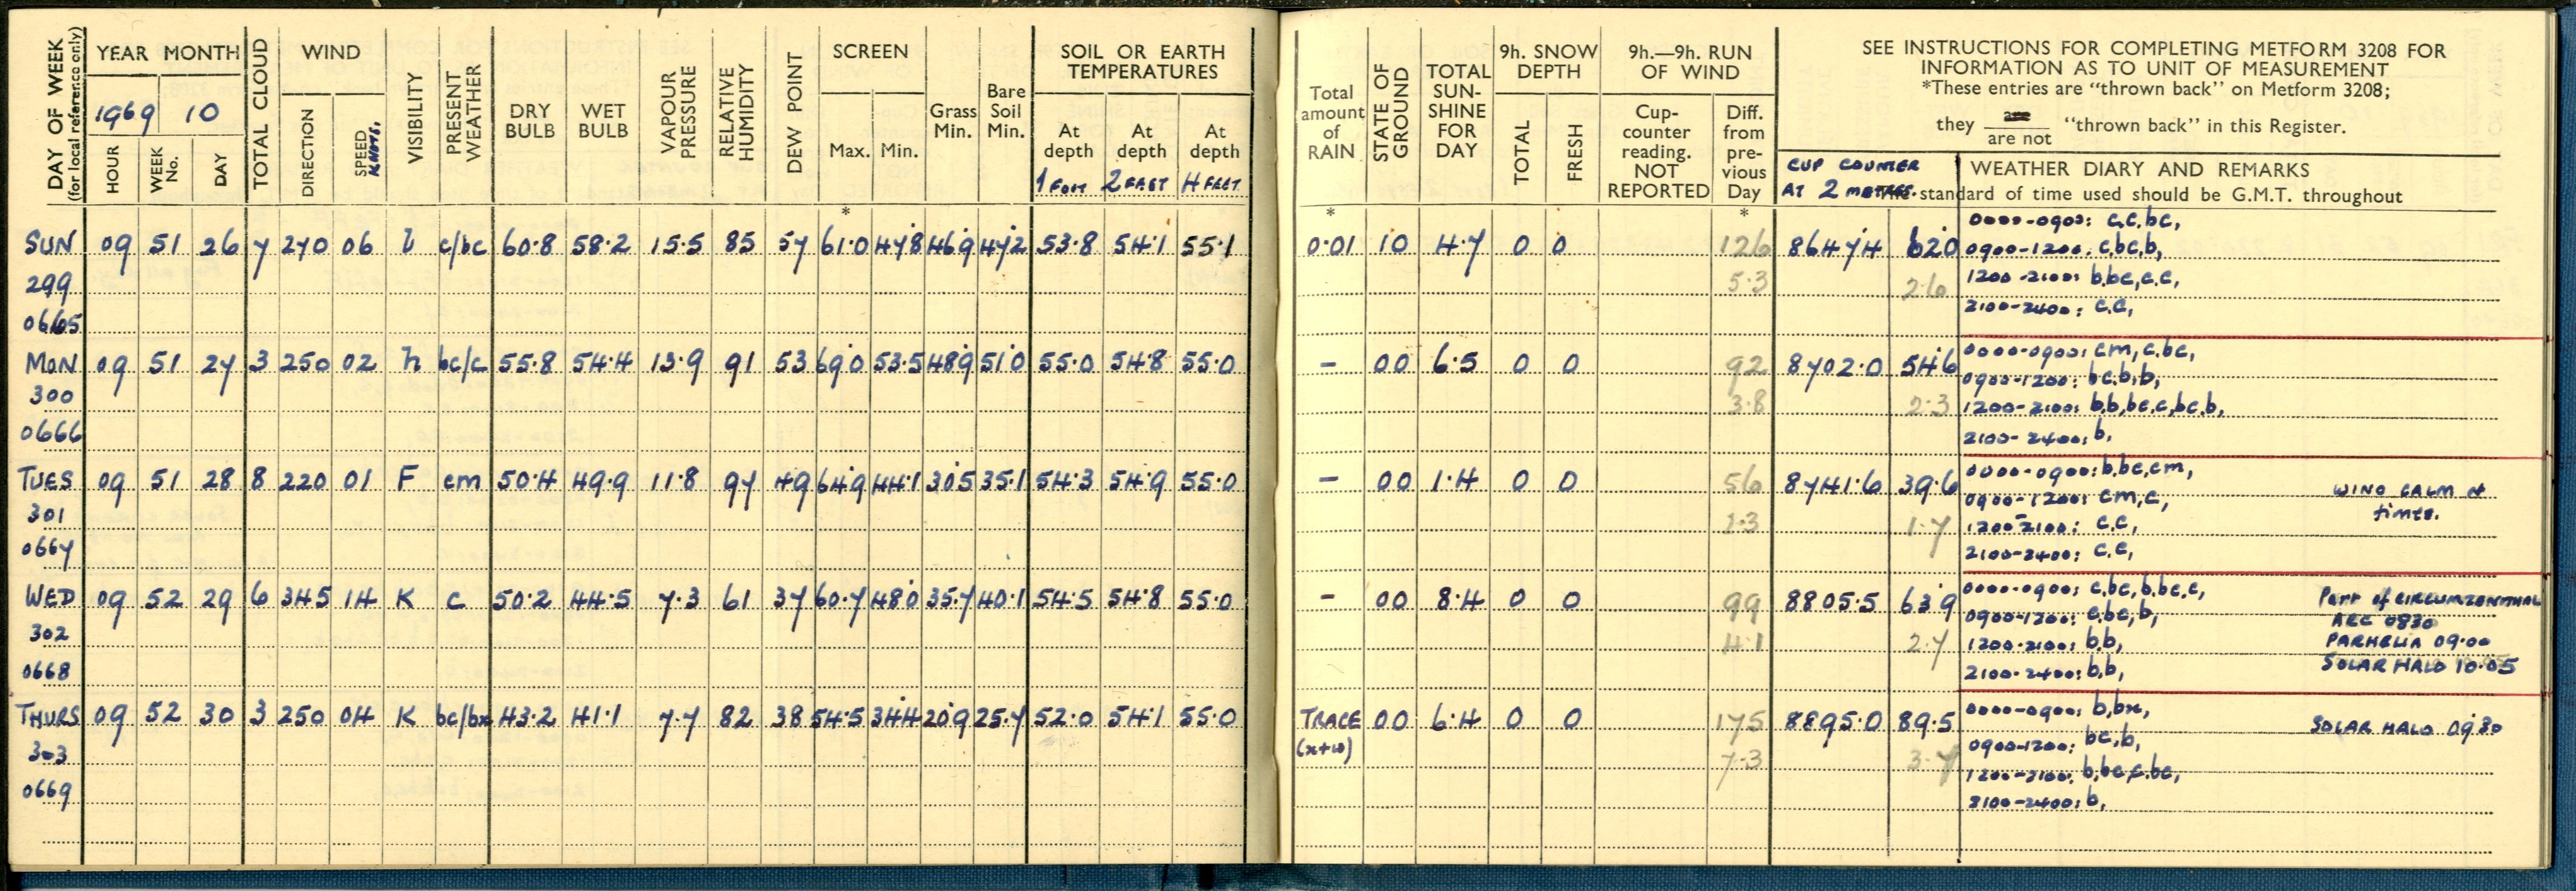 DAY OF WEEK
(for local reference only)
YEAR MONTH
1969 10
HOUR
WEEK No.
DAY
TOTAL CLOUD
WIND
DIRECTION
SPEED
KNOTS.
VISIBILITY
PRESENT WEATHER
DRY BULB
WET BULB
VAPOUR PRESSURE
RELATIVE HUMIDITY
DEW POINT
SCREEN
Max. Min.
Grass Min.
Bare Soil Min.
SOIL OR EARTH TEMPERATURES
At depth 1 FOOT
At depth 2 FEET
At depth 4 FEET
Total amount of RAIN
STATE OF GROUND
TOTAL SUN-SHINE FOR DAY
9h. SNOW DEPTH
TOTAL
FRESH
9h.—9h. RUN OF WIND
Cup-counter reading. NOT REPORTED
Diff. from pre-vious Day
SEE INSTRUCTIONS FOR COMPLETING METFORM 3208 FOR
INFORMATION AS TO UNIT OF MEASUREMENT
*These entries are "thrown back" on Metform 3208;
they are / are not "thrown back" in this Register.
CUP COUNTER
AT 2 METRES.
WEATHER DIARY AND REMARKS
standard of time used should be G.M.T. throughout
* * *
SUN 09 51 26 7 270 06 c/bc 60.8 58.2 15.5 85 57 61.0 47.8 46.9 47.2 53.8 54.1 55.1 0.01 10 4.7 0 0 126 86474 62.0 0000-0900: c,c,bc,
0900-1200: c,bc,b,
299 5.3 2.6 1200-2100: b,bc,c,c,
0665 2100-2400: c,c,
MON 09 51 27 3 250 02 h bc/c 55.8 54.4 13.9 91 53 69.0 53.5 48.9 51.0 55.0 54.8 55.0 — 00 6.5 0 0 92 8702.0 54.6 0000-0900: cm,c,bc,
0900-1200: bc,b,b,
300 3.8 2.3 1200-2100: b,b,bc,c,bc,b,
0666 2100-2400: b,
TUES 09 51 28 8 220 01 F cm 50.4 49.9 11.8 97 49 64.9 44.1 30.5 35.1 54.3 54.9 55.0 — 00 1.4 0 0 56 8741.6 39.6 0000-0900: b,bc,cm,
0900-1200: cm,c, WIND CALM at
301 2.3 1.7 1200-2100: c,c, times.
0667 2100-2400: c,c,
WED 09 52 29 6 345 14 K c 50.2 44.5 7.3 61 37 60.7 48.0 35.7 40.1 54.5 54.8 55.0 — 00 8.4 0 0 99 8805.5 63.9 0000-0900: c,bc,b,bc,c, Part of CIRCUMZENITHAL
0900-1200: c,bc,b, ARC 0830
302 4.1 2.7 1200-2100: b,b, PARHELIA 09.00
0668 2100-2400: b,b, SOLAR HALO 10.05
THURS 09 52 30 3 250 04 K bc/bx 43.2 41.1 7.7 82 38 54.5 34.4 20.9 25.7 52.0 54.1 55.0 TRACE 00 6.4 0 0 175 8895.0 89.5 0000-0900: b,bx, SOLAR HALO 09.30
(x+w) 0900-1200: bc,b,
303 7.3 3.7 1200-2100: b,bc,c,bc,
0669 2100-2400: b,